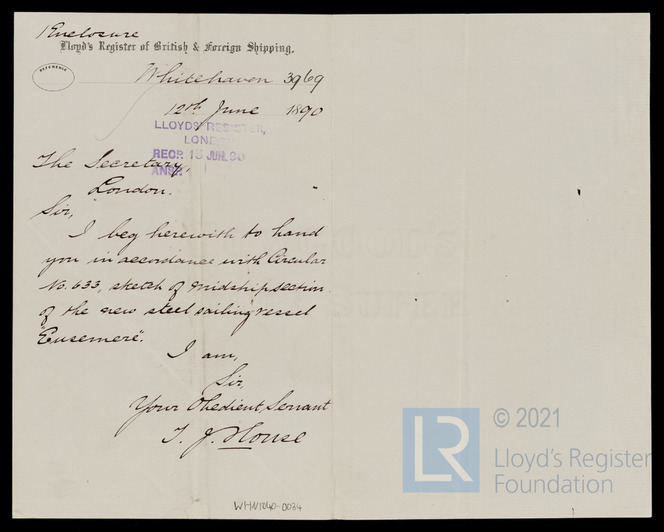 1 Enclosure
Lloyd's Register of British & Foreign Shipping.
REFERENCE
Whitehaven 3969
12th June 1890
LLOYDS REGISTER,
LONDON
RECP. 13 JUN. 90
ANSD.
The Secretary,
London.
Sir,
I beg herewith to hand
you in accordance with Circular
No. 633, sketch of midship section
of the new steel sailing vessel
"Eusemere".
I am,
Sir,
Your Obedient Servant
T. J. House
WHN1040-0034
LR
© 2021
Lloyd's Register
Foundation